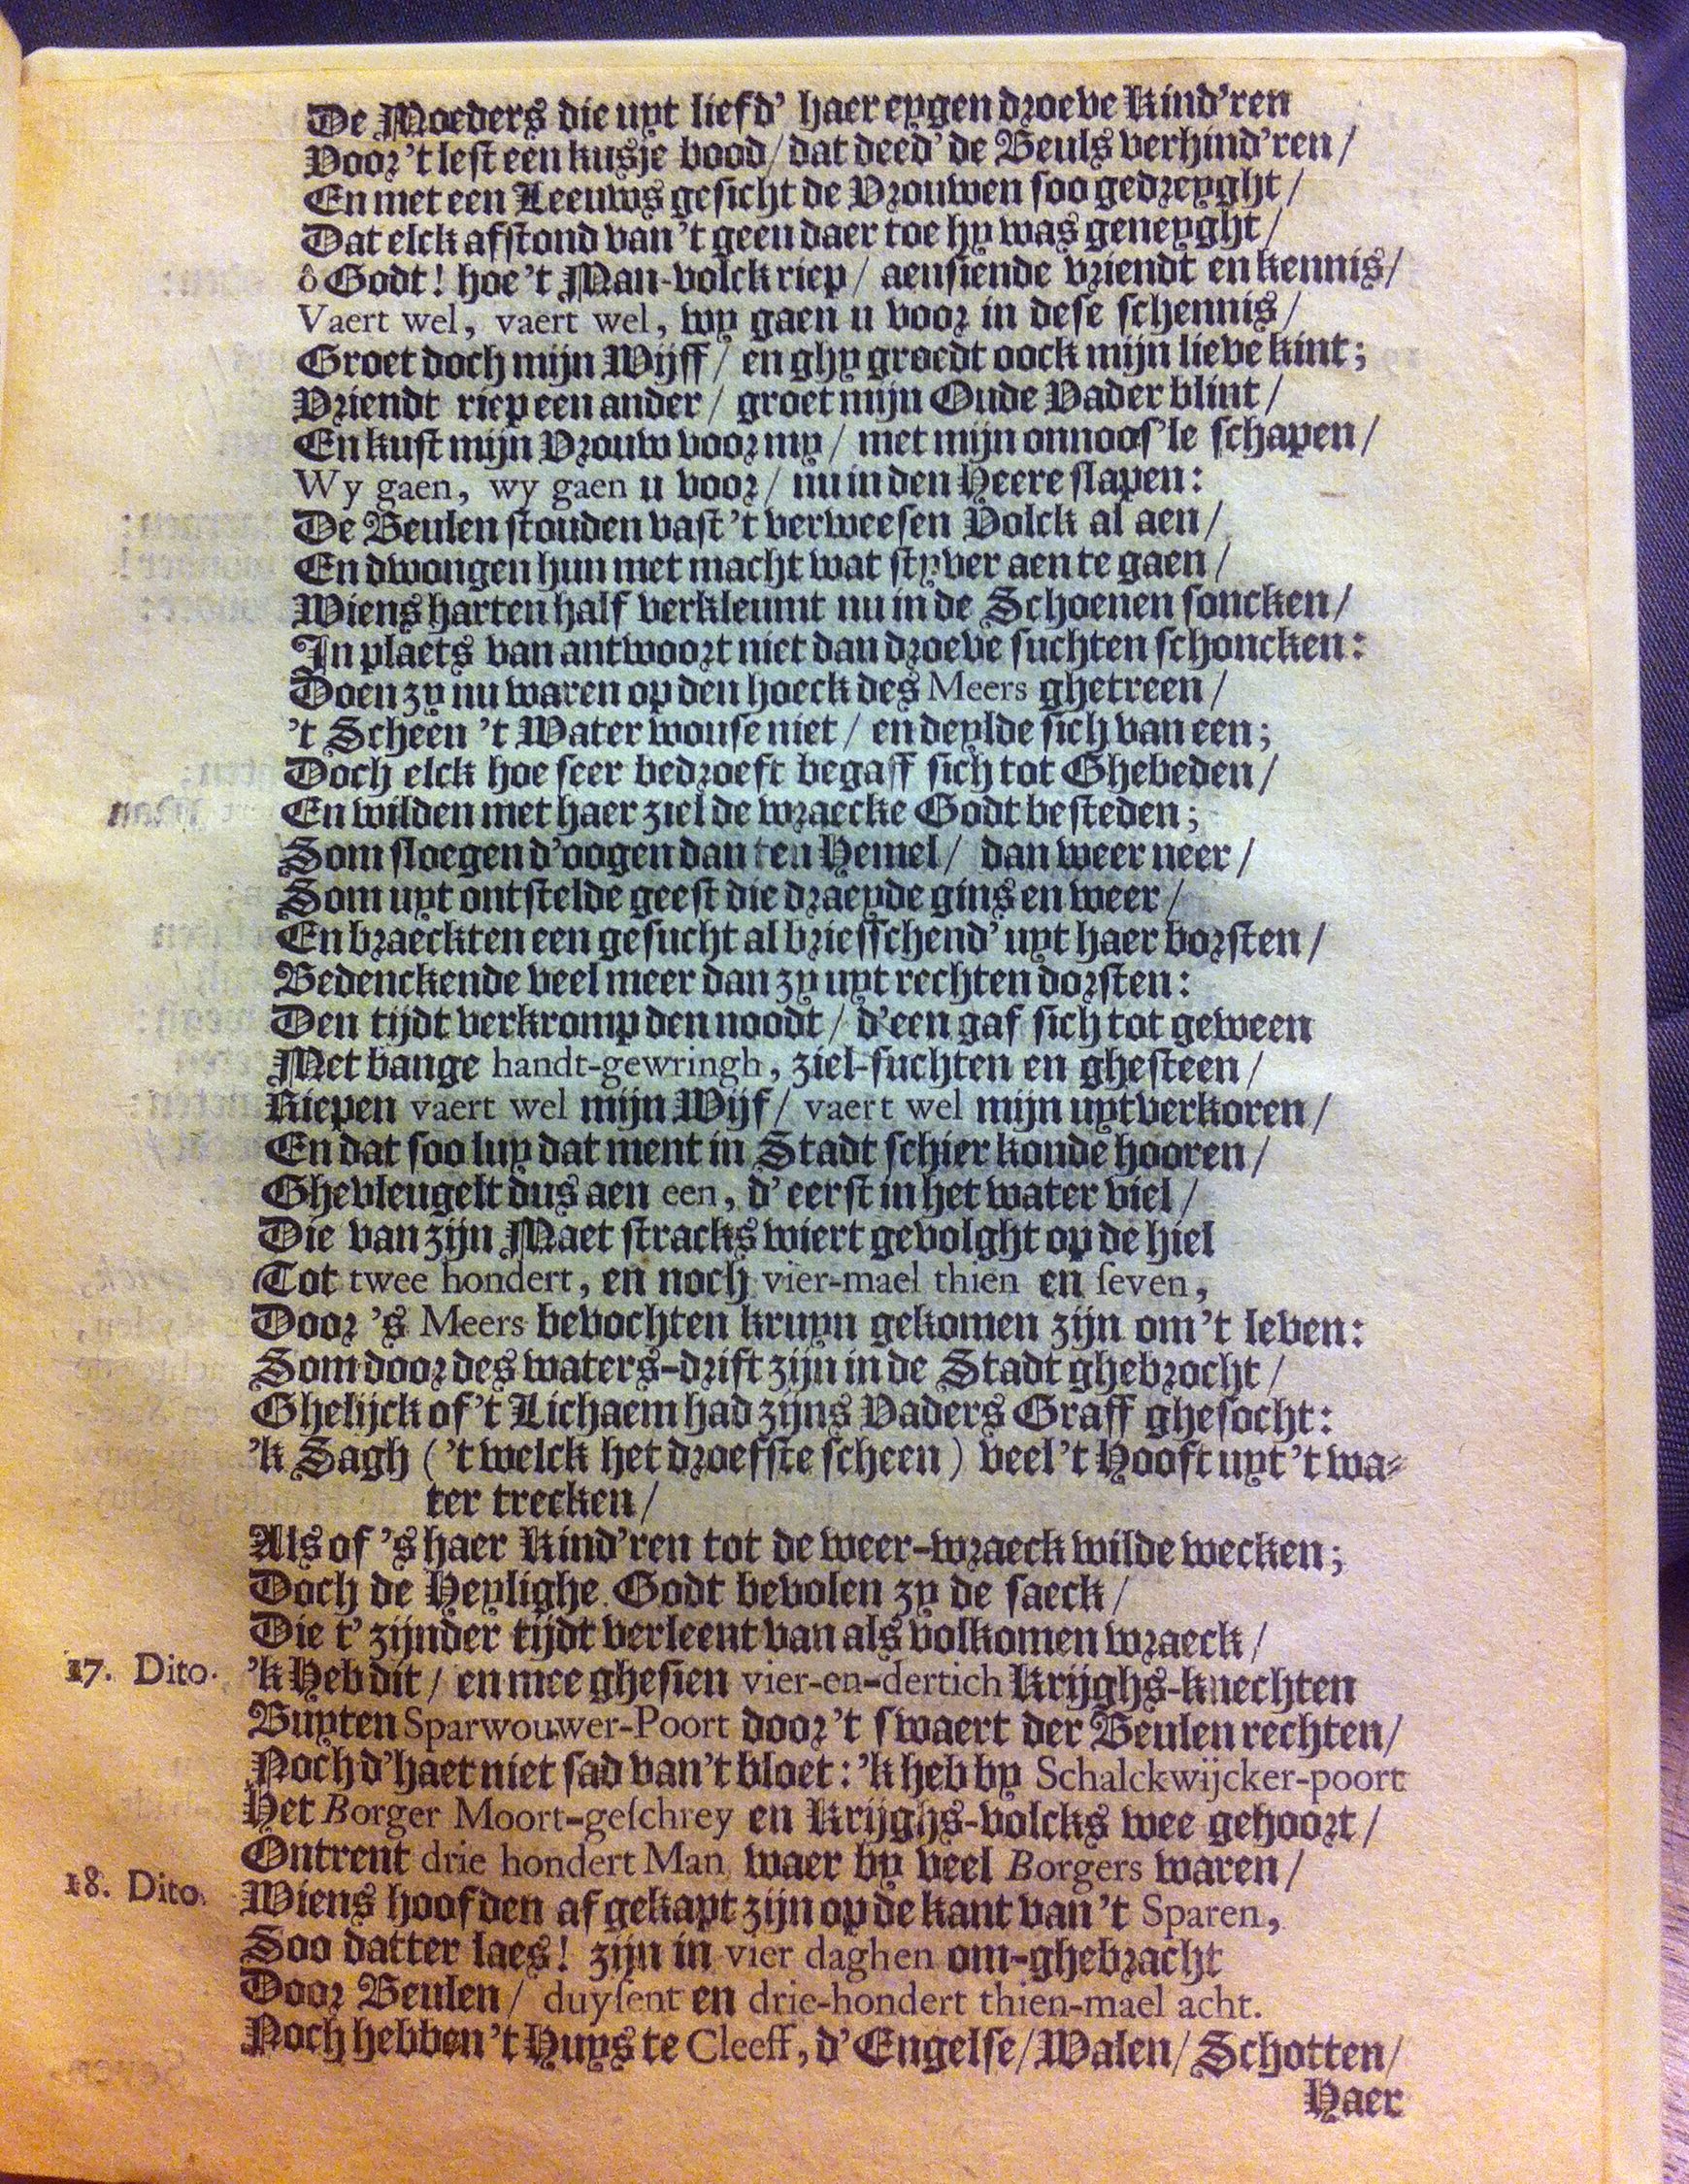 De Moeders die uyt liefd' haer eygen droeve Kind'ren
Voor 't lest een kusje bood / dat deed' de Beuls verhind'ren /
En met een Leeuws gesicht de Vrouwen soo gedreyght /
Dat elck afstond van 't geen daer toe hy was geneyght /
ô Godt! hoe 't Man-volck riep / aensiende vriendt en kennis /
Vaert wel, vaert wel, wy gaen u voor in dese schennis /
Groet doch mijn Wijff / en ghy groedt oock mijn lieve kint;
Vriendt riep een ander / groet mijn Oude Vader blint /
En kust mijn Vrouw voor my / met mijn onnoos'le schapen /
Wy gaen, wy gaen u voor / nu in den Heere slapen:
De Beulen stonden vast 't verweesen Volck al aen /
En dwongen hun met macht wat styver aen te gaen /
Wiens harten half verkleumt nu in de Schoenen soncken /
In plaets van antwoort niet dan droeve suchten schoncken:
Doen zy nu waren op den hoeck des Meers ghetreen /
't Scheen 't Water wouse niet / en deylde sich van een;
Doch elck hoe seer bedroeft begaff sich tot Ghebeden /
En wilden met haer ziel de wraecke Godt besteden;
Som sloegen d'oogen dan ten Hemel / dan weer neer /
Som uyt ontstelde geest die draeyde gins en weer /
En braeckten een gesucht al briesschend' uyt haer borsten /
Bedenckende veel meer dan zy uyt rechten dorsten:
Den tijdt verkromp den noodt / d'een gaf sich tot geween
Met bange handt-gewringh, ziel-suchten en ghesteen /
Riepen vaert wel mijn Wijf / vaert wel mijn uytverkoren /
En dat soo luy dat ment in Stadt schier konde hooren /
Ghevleugelt dus aen een, d'eerst in het water viel /
Die van zijn Maet stracks wiert gevolght op de hiel
Tot twee hondert, en noch vier-mael thien en seven,
Door 's Meers bevochten kruyn gekomen zijn om 't leven:
Som door des waters-drift zijn in de Stadt ghebrocht /
Ghelijck of 't Lichaem had zijns Vaders Graff ghesocht:
'k Sagh ('t welck het droefste scheen) veel 't Hooft uyt 't wa-
ter trecken /
Als of 's haer Kind'ren tot de weer-wraeck wilde wecken;
Doch de Heylighe Godt bevolen zy de saeck /
Die t' zijnder tijdt verleent van als volkomen wraeck /
17. Dito. 'k Heb dit / en mee ghesien vier-en-dertich Krijghs-knechten
Buyten Sparwouwer-Poort door 't swaert der Beulen rechten /
Noch d'haet niet sad van 't bloet: 'k heb by Schalckwijcker-poort
Het Borger Moort-geschrey en Krijghs-volcks wee gehoort /
Ontrent drie hondert Man waer by veel Borgers waren /
18. Dito. Wiens hoofden afgekapt zijn op de kant van 't Sparen,
Soo datter laes! zijn in vier daghen om-ghebracht
Door Beulen / duysent en drie-hondert thien-mael acht.
Noch hebben 't Huys te Cleeff, d'Engelse / Walen / Schotten /
Haer